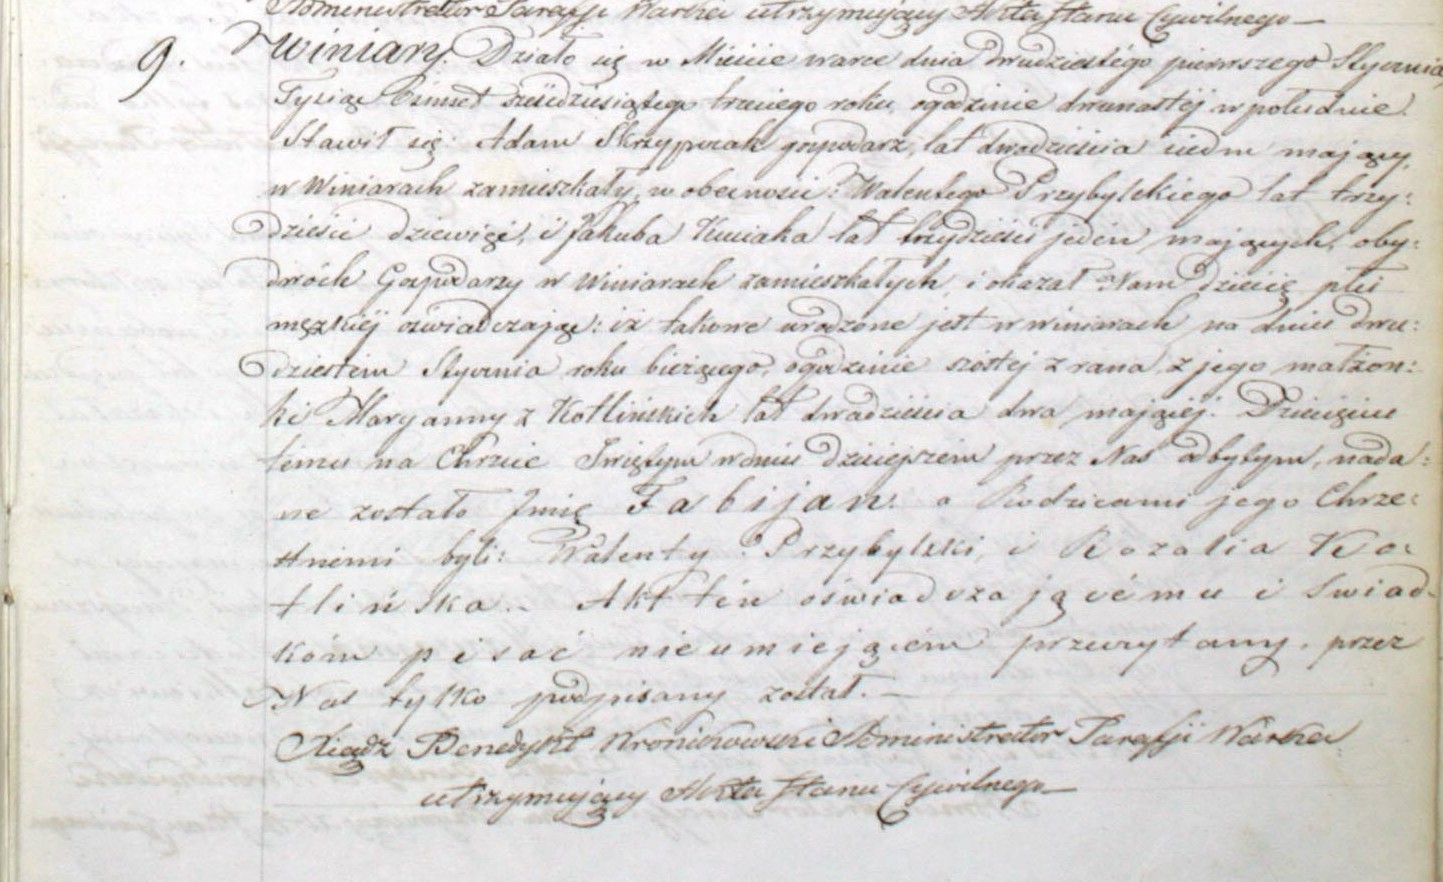 Administrator Parafji Warka utrzymujący Akta Stanu Cywilnego
9. Winiary. Działo się w Mieście warce dnia dwudziestego pierwszego Stycznia
Tysiąc Ośmset sześćdziesiątego trzeciego roku, ogodzinie dwunastéj w południe.
Stawił się Adam Skrzypczak gospodarz, lat dwadzieścia siedm mający,
w Winiarach zamieszkały, w obecności: Walentego Przybylskiego lat trzy:
dzieście dziewięć, i Jakuba Kuciaka lat trzydzieści jeden mających, oby:
dwóch Gospodarzy w Winiarach zamieszkałych, i okazał Nam dziécię płci
męzkiéj oświadczając: iż takowe urodzone jest w winiarach na dniu dwu:
dziestem Stycznia, roku bieżącego, ogodzinie szóstej z rana, z jego małżon:
ki Maryanny z Kotlińskich lat dwadzieścia dwa mającéj. Dziécięciu
temu na Chrzcie Swiętym w dniu dzisiejszem przez Nas odbytym, nada:
ne zostało Jmię Fabijan. a Rodzicami jego Chrze:
stnemi byli: Walenty Przybylski, i Rozalia Ko:
tlińska. Akt tén oświadczającému i Swiad:
kom pisać nieumiejącém przeczytany, przez
Nas tylko podpisany został.—
Xiądz Benedykt Wronikowski Administrator Parafji Warka
utrzymujący Akta Stanu Cywilnego—